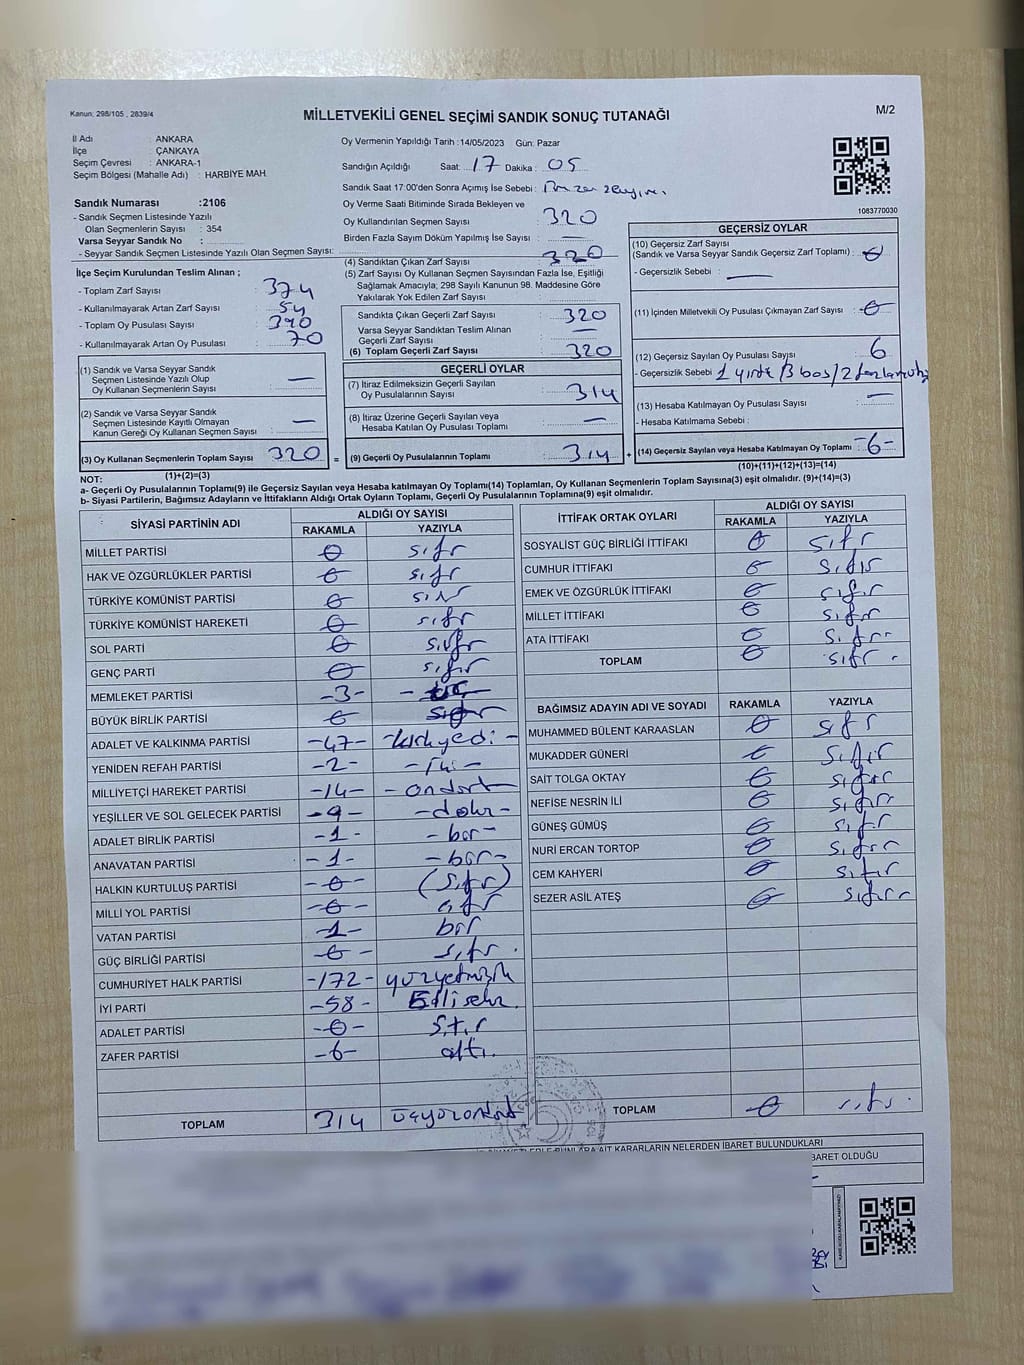 Kanun: 298/105 , 2839/4
MİLLETVEKİLİ GENEL SEÇİMİ SANDIK SONUÇ TUTANAĞI
M/2
İl Adı : ANKARA
İlçe : ÇANKAYA
Seçim Çevresi : ANKARA-1
Seçim Bölgesi (Mahalle Adı) : HARBİYE MAH.
Sandık Numarası :2106
- Sandık Seçmen Listesinde Yazılı
Olan Seçmenlerin Sayısı : 354
Varsa Seyyar Sandık No :
- Seyyar Sandık Seçmen Listesinde Yazılı Olan Seçmen Sayısı:
İlçe Seçim Kurulundan Teslim Alınan ;
- Toplam Zarf Sayısı : 374
- Kullanılmayarak Artan Zarf Sayısı : 54
- Toplam Oy Pusulası Sayısı : 390
- Kullanılmayarak Artan Oy Pusulası : 70
(1) Sandık ve Varsa Seyyar Sandık
Seçmen Listesinde Yazılı Olup
Oy Kullanan Seçmenlerin Sayısı : —
(2) Sandık ve Varsa Seyyar Sandık
Seçmen Listesinde Kayıtlı Olmayan
Kanun Gereği Oy Kullanan Seçmen Sayısı : —
(3) Oy Kullanan Seçmenlerin Toplam Sayısı : 320
(1)+(2)=(3)
Oy Vermenin Yapıldığı Tarih :14/05/2023 Gün: Pazar
Sandığın Açıldığı Saat: 17 Dakika : 05
Sandık Saat 17:00'den Sonra Açımış İse Sebebi :
Oy Verme Saati Bitiminde Sırada Bekleyen ve
Oy Kullandırılan Seçmen Sayısı : 320
Birden Fazla Sayım Döküm Yapılmış İse Sayısı : —
(4) Sandıktan Çıkan Zarf Sayısı : 320
(5) Zarf Sayısı Oy Kullanan Seçmen Sayısından Fazla İse, Eşitliği
Sağlamak Amacıyla; 298 Sayılı Kanunun 98. Maddesine Göre
Yakılarak Yok Edilen Zarf Sayısı :
Sandıkta Çıkan Geçerli Zarf Sayısı : 320
Varsa Seyyar Sandıktan Teslim Alınan
Geçerli Zarf Sayısı : —
(6) Toplam Geçerli Zarf Sayısı : 320
GEÇERLİ OYLAR
(7) İtiraz Edilmeksizin Geçerli Sayılan
Oy Pusulalarının Sayısı : 314
(8) İtiraz Üzerine Geçerli Sayılan veya
Hesaba Katılan Oy Pusulası Toplamı : —
= (9) Geçerli Oy Pusulalarının Toplamı : 314 +
1083770030
GEÇERSİZ OYLAR
(10) Geçersiz Zarf Sayısı
(Sandık ve Varsa Seyyar Sandık Geçersiz Zarf Toplamı) : 0
- Geçersizlik Sebebi : —
(11) İçinden Milletvekili Oy Pusulası Çıkmayan Zarf Sayısı : 0
(12) Geçersiz Sayılan Oy Pusulası Sayısı : 6
- Geçersizlik Sebebi : 1 yırtık /3 boş/2
(13) Hesaba Katılmayan Oy Pusulası Sayısı : —
- Hesaba Katılmama Sebebi :
(14) Geçersiz Sayılan veya Hesaba Katılmayan Oy Toplamı : -6-
(10)+(11)+(12)+(13)=(14)
NOT:
a- Geçerli Oy Pusulalarının Toplamı(9) ile Geçersiz Sayılan veya Hesaba katılmayan Oy Toplamı(14) Toplamları, Oy Kullanan Seçmenlerin Toplam Sayısına(3) eşit olmalıdır. (9)+(14)=(3)
b- Siyasi Partilerin, Bağımsız Adayların ve İttifakların Aldığı Ortak Oyların Toplamı, Geçerli Oy Pusulalarının Toplamına(9) eşit olmalıdır.
SİYASİ PARTİNİN ADI ALDIĞI OY SAYISI
RAKAMLA YAZIYLA
MİLLET PARTİSİ 0 sıfır
HAK VE ÖZGÜRLÜKLER PARTİSİ 0 sıfır
TÜRKİYE KOMÜNİST PARTİSİ 0 sıfır
TÜRKİYE KOMÜNİST HAREKETİ 0 sıfır
SOL PARTİ 0 sıfır
GENÇ PARTİ 0 sıfır
MEMLEKET PARTİSİ -3- - üç
BÜYÜK BİRLİK PARTİSİ 0 sıfır
ADALET VE KALKINMA PARTİSİ -47- -kırkyedi-
YENİDEN REFAH PARTİSİ -2- -iki-
MİLLİYETÇİ HAREKET PARTİSİ -14- -ondört
YEŞİLLER VE SOL GELECEK PARTİSİ -9- -dokuz-
ADALET BİRLİK PARTİSİ -1- -bir-
ANAVATAN PARTİSİ -1- -bir-
HALKIN KURTULUŞ PARTİSİ -0- (sıfır)
MİLLİ YOL PARTİSİ -0- sıfır
VATAN PARTİSİ -1- bir
GÜÇ BİRLİĞİ PARTİSİ -0- sıfır.
CUMHURİYET HALK PARTİSİ -172- yüzyetmişiki
İYİ PARTİ -58- Ellisekiz
ADALET PARTİSİ -0- sıfır
ZAFER PARTİSİ -6- altı.
TOPLAM 314 üçyüzondört
İTTİFAK ORTAK OYLARI ALDIĞI OY SAYISI
RAKAMLA YAZIYLA
SOSYALİST GÜÇ BİRLİĞİ İTTİFAKI 0 sıfır
CUMHUR İTTİFAKI 0 sıfır
EMEK VE ÖZGÜRLÜK İTTİFAKI 0 sıfır
MİLLET İTTİFAKI 0 sıfır
ATA İTTİFAKI 0 sıfır
TOPLAM 0 sıfır.
BAĞIMSIZ ADAYIN ADI VE SOYADI RAKAMLA YAZIYLA
MUHAMMED BÜLENT KARAASLAN 0 sıfır
MUKADDER GÜNERİ 0 sıfır
SAİT TOLGA OKTAY 0 sıfır
NEFİSE NESRİN İLİ 0 sıfır
GÜNEŞ GÜMÜŞ 0 sıfır
NURİ ERCAN TORTOP 0 sıfır
CEM KAHYERİ 0 sıfır
SEZER ASİL ATEŞ 0 sıfır
TOPLAM 0 sıfır
AİT KARARLARIN NELERDEN İBARET BULUNDUKLARI
BARET OLDUĞU